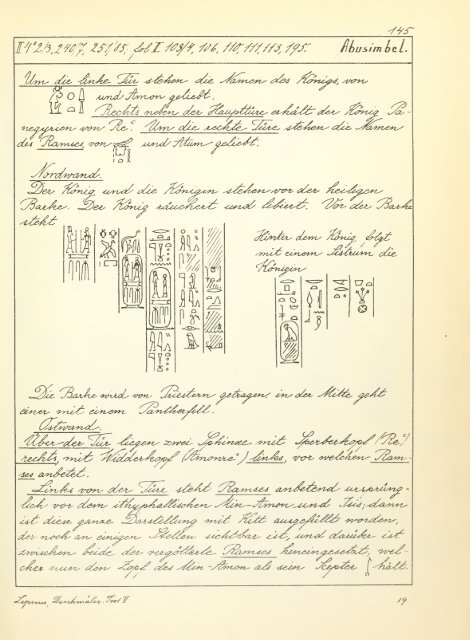 145
II N° 2/3, 240, 7, 251, 65, fol. I. 103/4, 106, 110, 111, 113, 195. Abusimbel.
Um die linke Tür stehen die Namen des Königs, von
und Amon geliebt.
Rechts neben der Haupttüre erhält der König Pa-
negyrien von Re'. Um die rechte Türe stehen die Namen
des Ramses, von und Atum geliebt.
Nordwand.
Der König und die Königin stehen vor der heiligen
Barke. Der König räuchert und libiert. Vor der Barke
steht
Hinter dem König folgt
mit einem Sistrum die
Königin
Die Barke wird von Priestern getragen, in der Mitte geht
einer mit einem Pantherfell.
Ostwand.
Über der Tür liegen zwei Sphinxe mit Sperberkopf (Re')
rechts, mit Widderkopf (Amonre') links, vor welchen Ram-
ses anbetet.
Links von der Türe steht Ramses anbetend ursprüng-
lich vor dem ithyphallischen Min-Amon und Isis; dann
ist diese ganze Darstellung mit Kitt ausgefüllt worden,
der noch an einigen Stellen sichtbar ist, und darüber ist
zwischen beide der vergötterte Ramses hineingesetzt, wel-
cher nun den Zopf des Min-Amon als sein Szepter hält.
Lepsius, Denkmäler. Text V
19